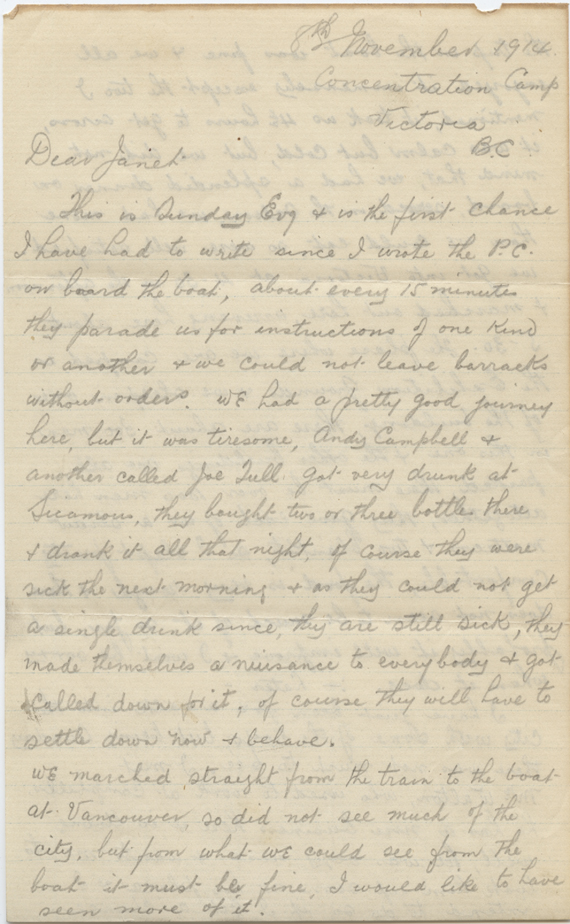 8th November 1914.
Concentration Camp
Victoria
BC
Dear Janet
This is Sunday Evg & is the first chance
I have had to write since I wrote the P.C.
on board the boat, about every 15 minutes
they parade us for instructions of one kind
or another & we could not leave barracks
without orders. WE had a pretty good journey
here, but it was tiresome, Andy Campbell &
another called Joe Tull got very drunk at
Sicamous, they bought two or three bottles there
& drank it all that night, of course they were
sick the next morning & as they could not get
a single drink since, they are still sick, they
made themselves a nuisance to everybody & got
called down for it, of course they will have to
settle down now & behave.
WE marched straight from the train to the boat
at Vancouver, so did not see much of the
city, but from what WE could see from the
boat it must be fine, I would like to have
seen more of it.